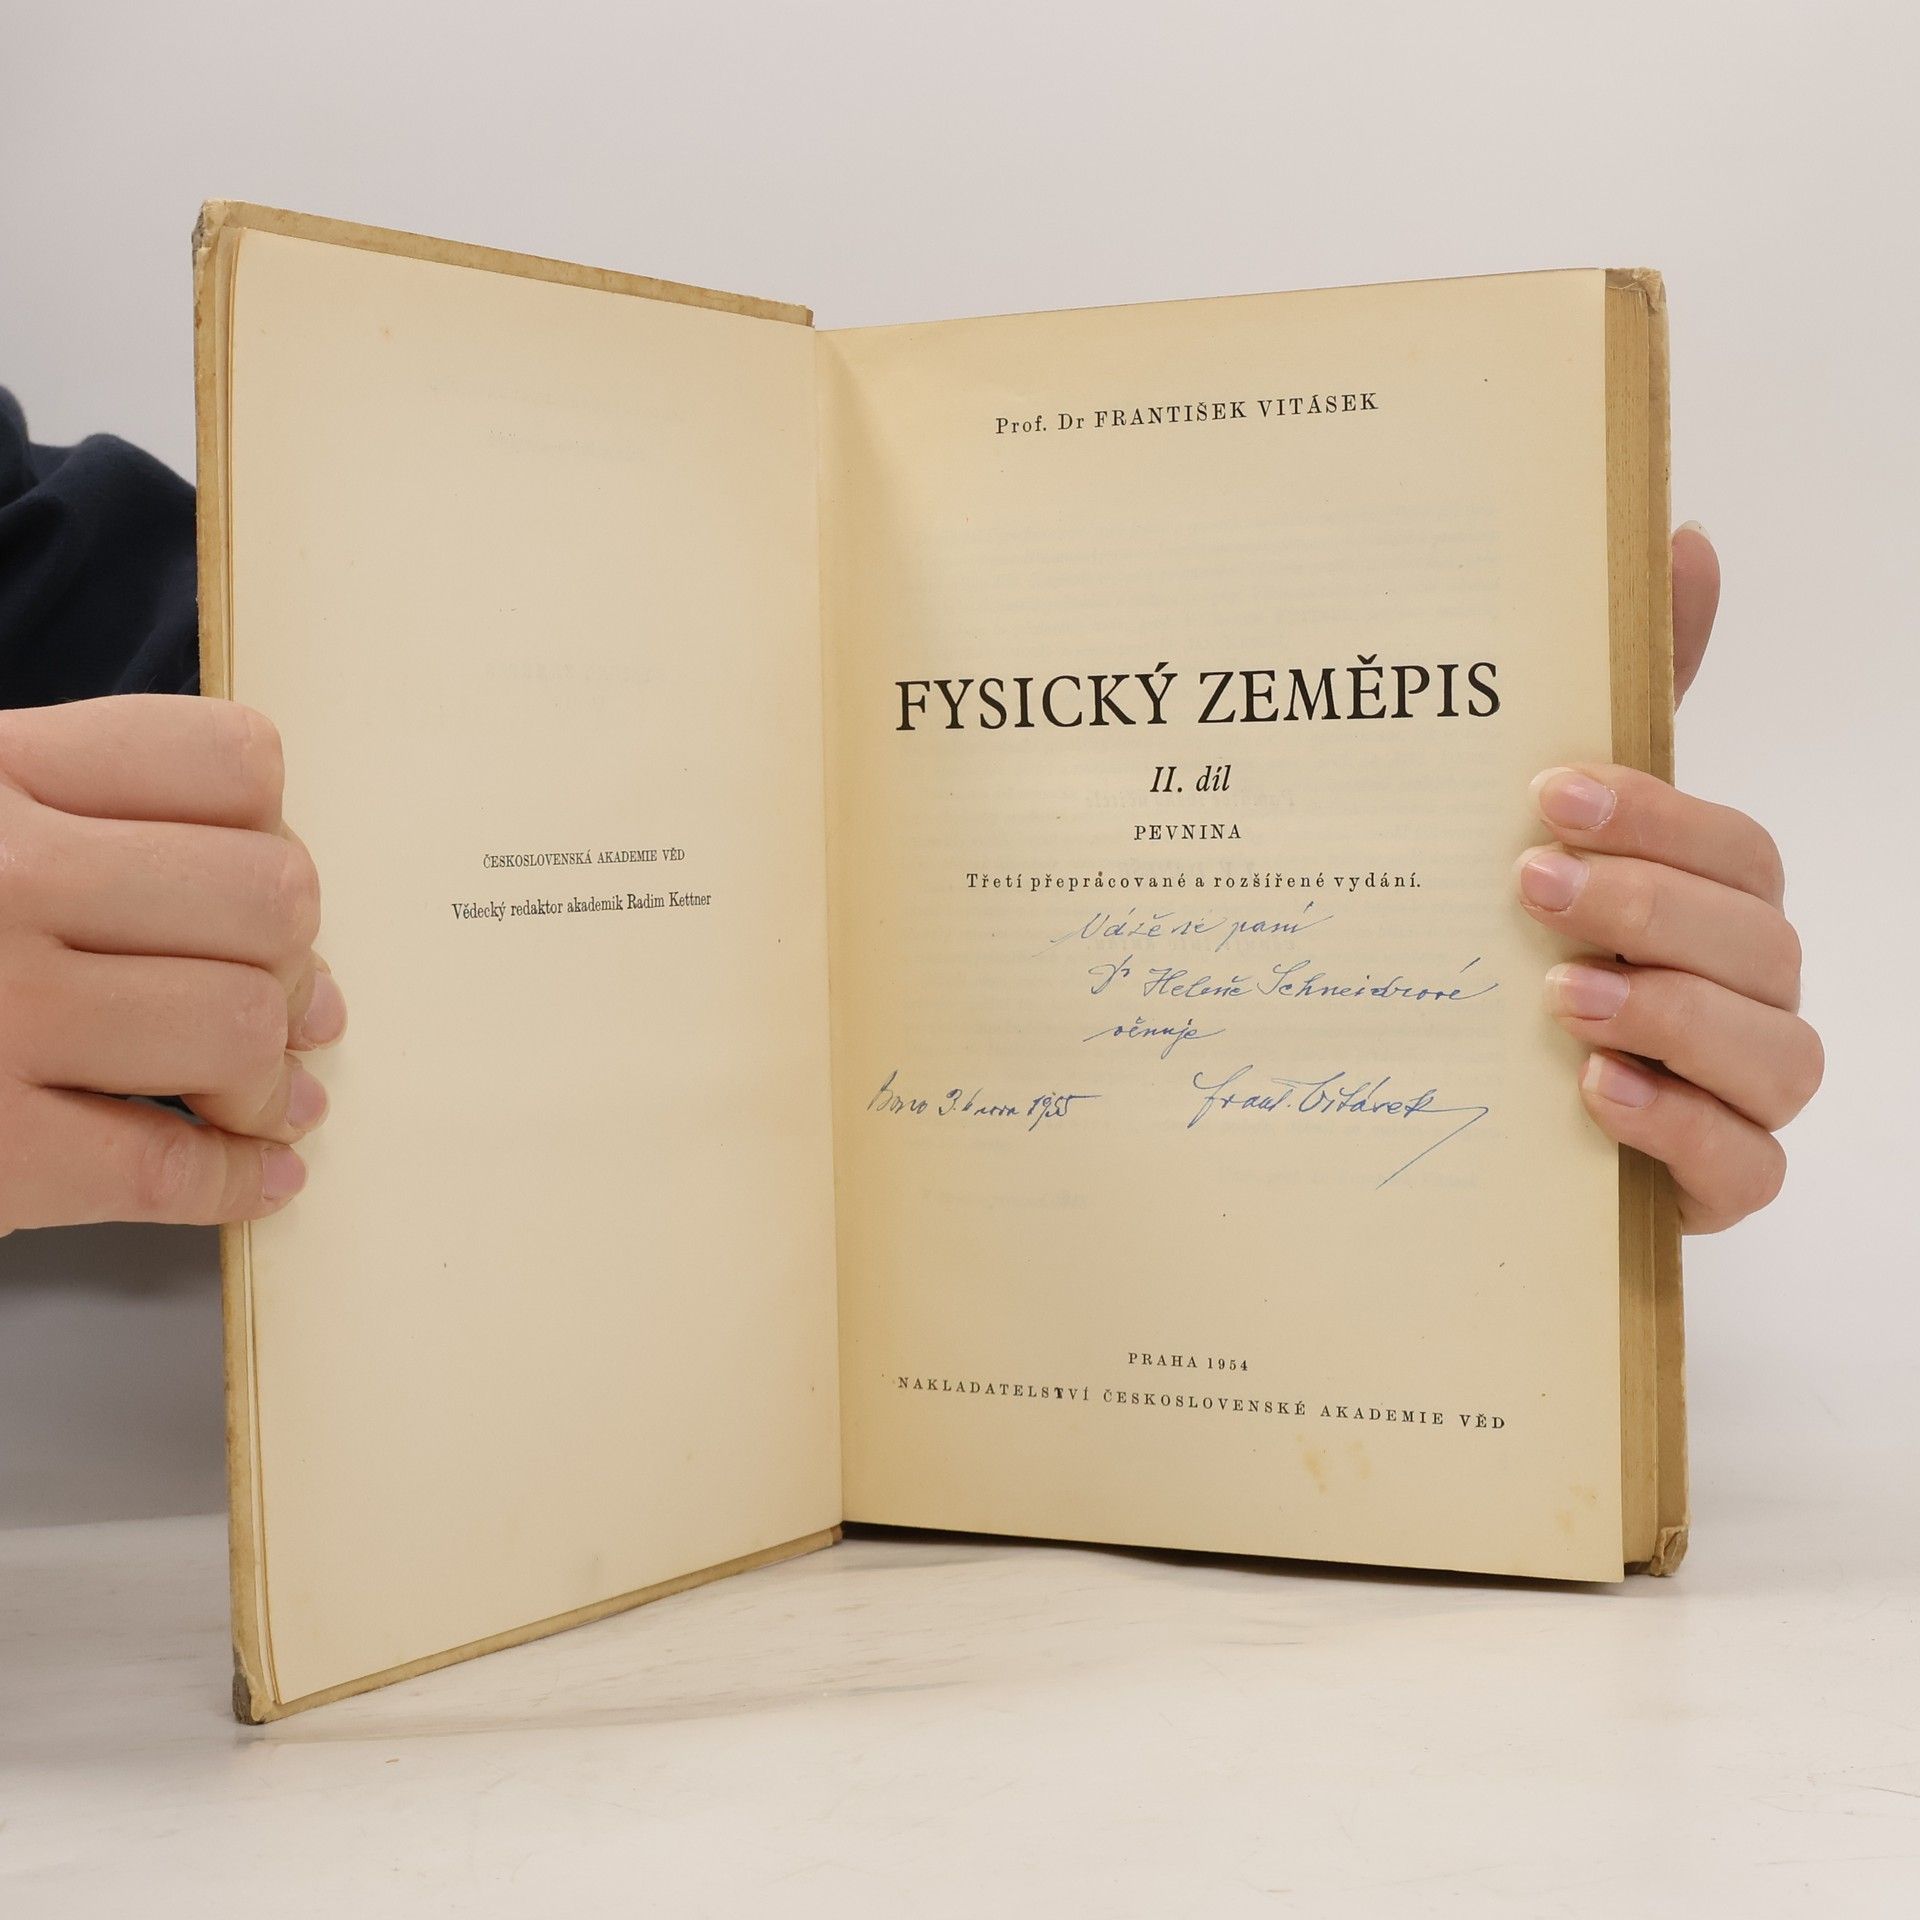 ČESKOSLOVENSKÁ AKADEMIE VĚD
Vědecký redaktor akademik Radim Kettner
Prof. Dr FRANTIŠEK VITÁSEK
FYSICKÝ ZEMĚPIS
II. díl
PEVNINA
Třetí přepracované a rozšířené vydání.
Vážené paní
Dr Heleně Schneidrové
věnuje
Brno 3. února 1955
Frant. Vitásek
PRAHA 1954
NAKLADATELSTVÍ ČESKOSLOVENSKÉ AKADEMIE VĚD